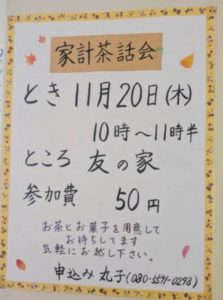 家計茶話会
とき 11月20日(木)
10時～11時半
ところ 友の家
参加費 50円
お茶とお菓子を用意して
お待ちしてます
気軽にお越し下さい。
申込み 丸子(080-5571-0298)